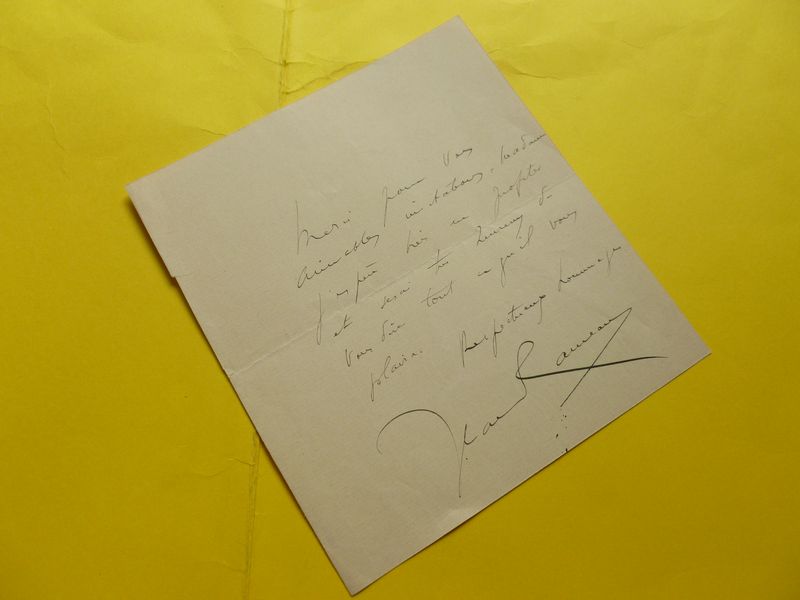 Merci pour vos
aimables invitations, Madame
J'espère bien en profiter
et serai très heureux de
vous dire tout ce qu'il vous
plaira. Respectueux hommages
Jean Rameau